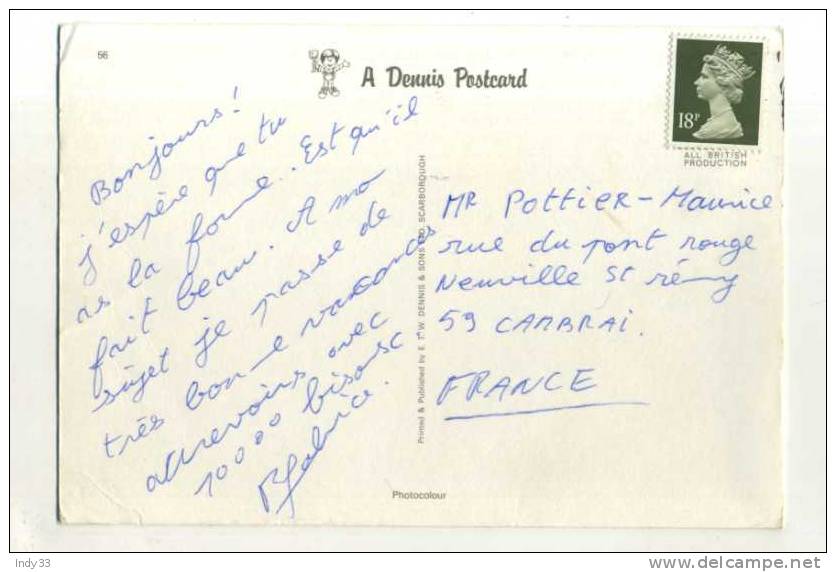 56
A Dennis Postcard
18P
ALL BRITISH
PRODUCTION
Bonjours!
j'espère que tu
as la forme.. Est qu'il
fait beau. A mo
sujet je passe de
très bon-e vacances
aurevoirs avec
10000 bisousc
Printed & Published by E. T. W. DENNIS & SONS LTD. SCARBOROUGH
MR POTTIER-Maurice
rue du pont rouge
Neuville St rémy
59 CAMBRAI.
FRANCE
Photocolour
Indy33
www.delcampe.net